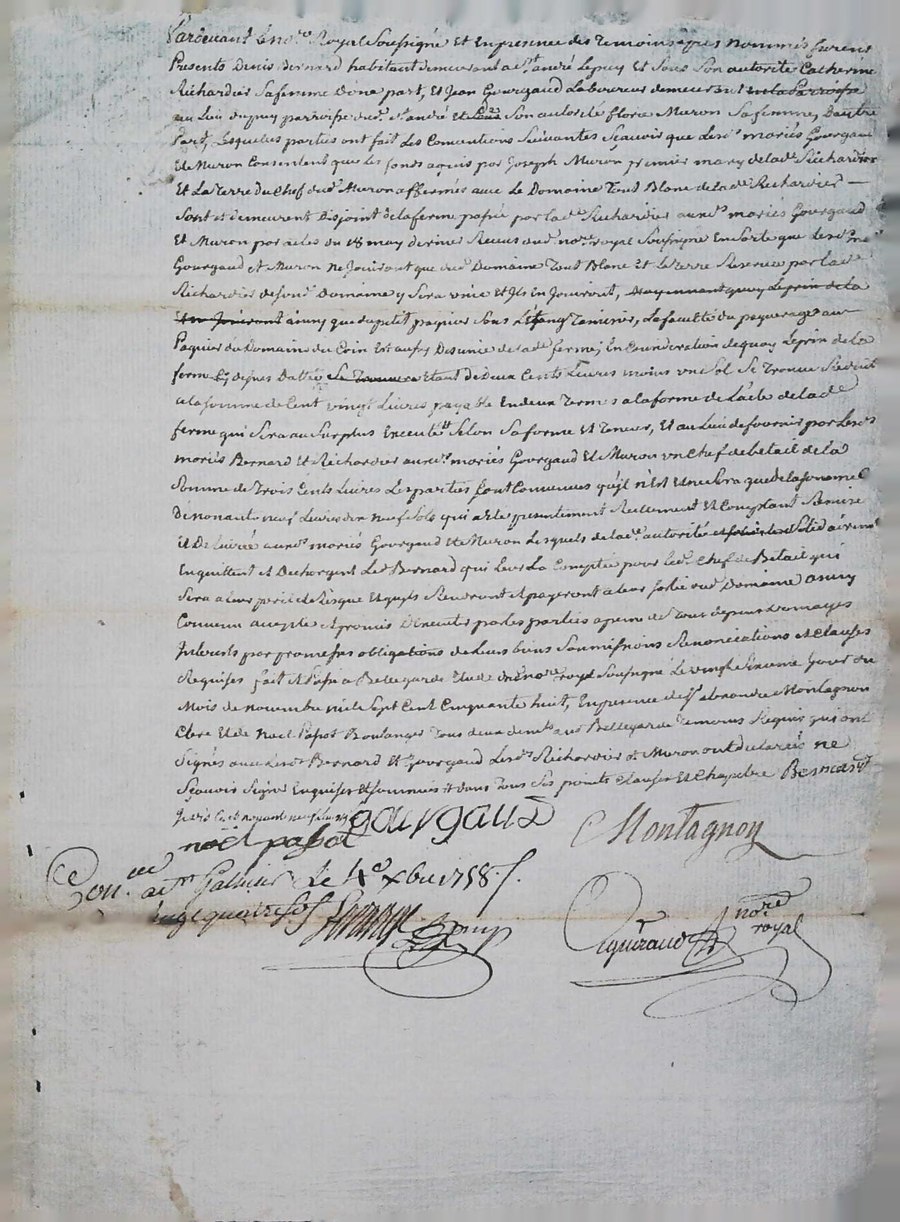 Pardevant le no.re Royal Soussigné Et En presence des Temoins apres nommés furent
Presents Denis Bernard habitant demeurant a S.t andré Lepuy Et Sous Son autorité Catherine
Richardier Sa femme Dune part, et Jean Gourgaud Laboureur demeurant en la Parroisse
au Lieu Dupuy parroisse dud. S.t andré et Sous Son autorité flora Muron Sa femme, Dautre
Part, Lesquelles parties ont fait Les Conventions Suivantes Scavoir que Lesd. mariés Gourgaud
et Muron Consentent que Les fonds aquis par Joseph Muron premier mary de lad. Richardier
Et La Terre du Chef dud. Muron affermés avec Le Domaine Tout Blanc de lad. Richardier
Sont et demeurent Disjoint de la ferme passée par lad. Richardier auxd. mariés Gourgaud
Et Muron par acte du 18 may dernier Receus dud. no.re royal Soussigné En Sorte que lesd. m.és
Gourgaud et Muron ne Jouiront que dud. Domaine Tout Blanc Et La Terre Reservée par lad.
Richardier de sond. Domaine y Sera unie et Ils En Jouiront, Moyennant quoy Le prix de la
En Jouiront ainsy que du petit paquier Sous Letang, La faculté du paquerage au
Paquier du Domaine du Coin Est aussy Desunie de lad. ferme; En Consideration de quoy Le prix de la
ferme Se Trouvera Etant de Deux Cents Livres moins un Sol Se Trouve Reduit
a la Somme de Cent vingt Livres payable En deux Termes a la forme de L'acte de lad.
ferme qui Sera au Surplus Executé Selon Sa forme Et Teneur, Et au Lieu de fournir par Lesd.
mariés Bernard Et Richardier auxd. mariés Gourgaud Et Muron un Chef de betail de la
Somme de Trois Cents Livres Les parties Sont Convenues qu'il n'Est Et ne Sera que de la Somme
De nonante neuf Livres dix neuf Sols qui a Eté presentement Reellement Et Comptant Remise
Et Delivrée auxd. mariés Gourgaud Et Muron Lesquels de lad. autorité
Enquittent et Dechargent Led. Bernard qui Leur La Comptée pour led. Chef de Betail qui
Sera a leur peril et Risque Et qu'ils Rendront et payeront a leur Sortie dud. Domaine ainsy
Convenu accepté et promis D'Executer par les parties a peine de Tous depens dommages
Interests par promesses obligations de Leurs biens Soumissions Renonciations et Clauses
Requises fait et Passé a Bellegarde Etude du no.re royal Soussigné Le vingt Sixieme Jour du
Mois de novembre mil Sept Cent Cinquante huit, En presence de S.r alexandre Montagnon
Clerc Et de Noël Papot Boulanger Tous deux dem.ts aud. Bellegarde Temoins Requis qui ont
Signés avec Lesd. Bernard Et Gourgaud Lesd. Richardier et Muron ont declarées ne
Scavoir Signer Enquises et Sommées dans Tous Ses points Clauses Et Chapitre Bernard
gaurgaud
Montagnon
noël papot
Con.lé a S.t Galmier Le 4e Xbre 1758.
quatre sols
no.re
royal